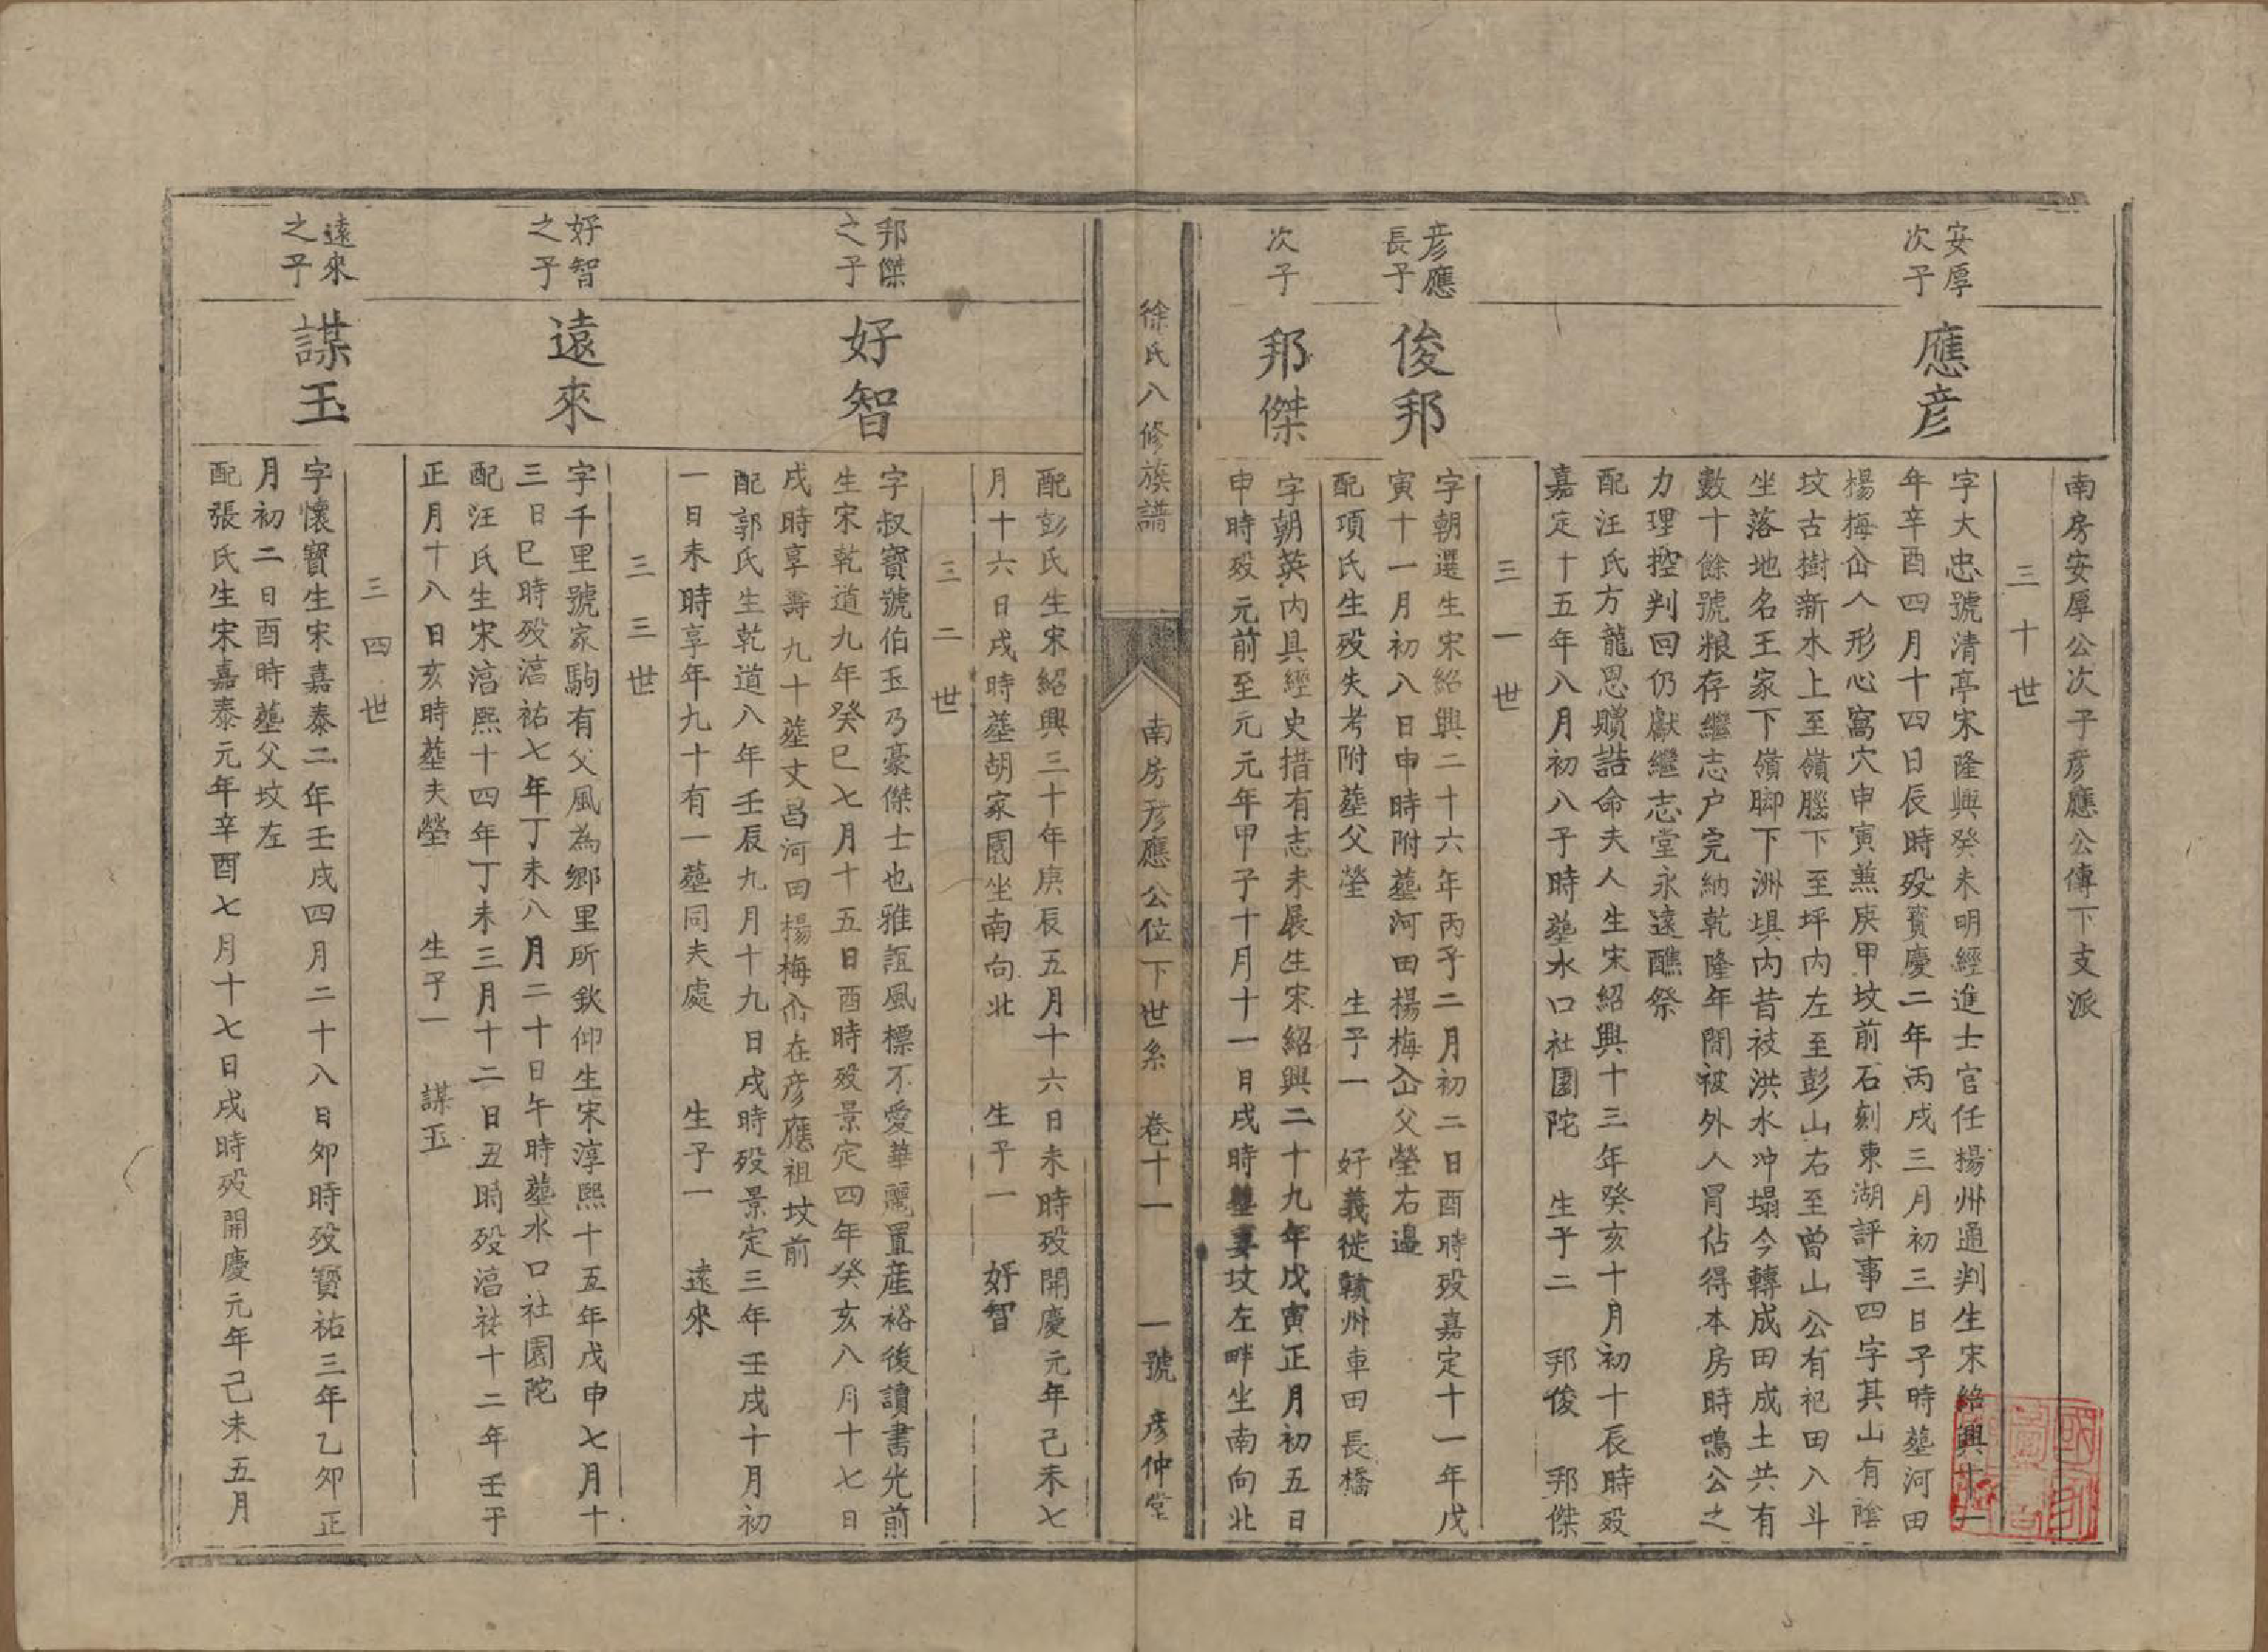 南房安厚公次子彦應公傳下支派
三十世
安厚次子
應彦
字大忠號清亭宋隆興癸未明經進士官任揚州通判生宋紹興十一
年辛酉四月十四日辰時殁寶慶二年丙戌三月初三日子時塟河田
楊梅仚人形心窩穴申寅兼庚甲坟前石刻東湖評事四字其山有陰
坟古樹新木上至嶺騰下至坪内左至彭山右至曾山公有祀田入斗
坐落地名王家下嶺脚下洲垻内昔被洪水冲塌今轉成田成土共有
數十餘號粮存繼志户完納乾隆年間被外人冐佔得本房時鳴公之
力理控判回仍獻繼志堂永遠醮祭
配汪氏方龍恩贈誥命夫人生宋紹興十三年癸亥十月初十辰時殁
嘉定十五年八月初八子時塟水口社園陀 生子二 邦俊 邦傑
三一世
彦應長子
俊邦
字朝選生宋紹興二十六年丙子二月初二日酉時殁嘉定十一年戊
寅十一月初八日申時附塟河田楊梅仚父塋右邊
配項氏生殁失考附塟父塋 生子一 好義徙贛州車田長橋
次子
邦傑
字朝英内具經史措有志未展生宋紹興二十九年戊寅正月初五日
申時殁元前至元元年甲子十月十一日戌時塟妻坟左畔坐南向北
徐氏八修族譜
南房彦應公位下世系 卷十一 一號 彦仲堂
配彭氏生宋紹興三十年庚辰五月十六日未時殁開慶元年己未七
月十六日戌時塟胡家園坐南向北 生子一 好智
三二世
邦傑之子
好智
字叔寶號伯玉乃豪傑士也雅誼風標不愛華麗置産裕後讀書光前
生宋乾道九年癸巳七月十五日酉時殁景定四年癸亥八月十七日
戌時享壽九十塟文昌河田楊梅仚在彦應祖坟前
配郭氏生乾道八年壬辰九月十九日戌時殁景定三年壬戌十月初
一日未時享年九十有一塟同夫處 生子一 遠來
三三世
好智之子
遠來
字千里號家駒有父風為鄉里所欽仰生宋淳熙十五年戊申七月十
三日巳時殁淳祐七年丁未八月二十日午時塟水口社園陀
配汪氏生宋淳熙十四年丁未三月十二日丑時殁淳祐十二年壬子
正月十八日亥時塟夫塋 生子一 謀玉
三四世
遠來之子
謀玉
字懷寶生宋嘉泰二年壬戌四月二十八日夘時殁寶祐三年乙夘正
月初二日酉時塟父坟左
配張氏生宋嘉泰元年辛酉七月十七日戌時殁開慶元年己未五月